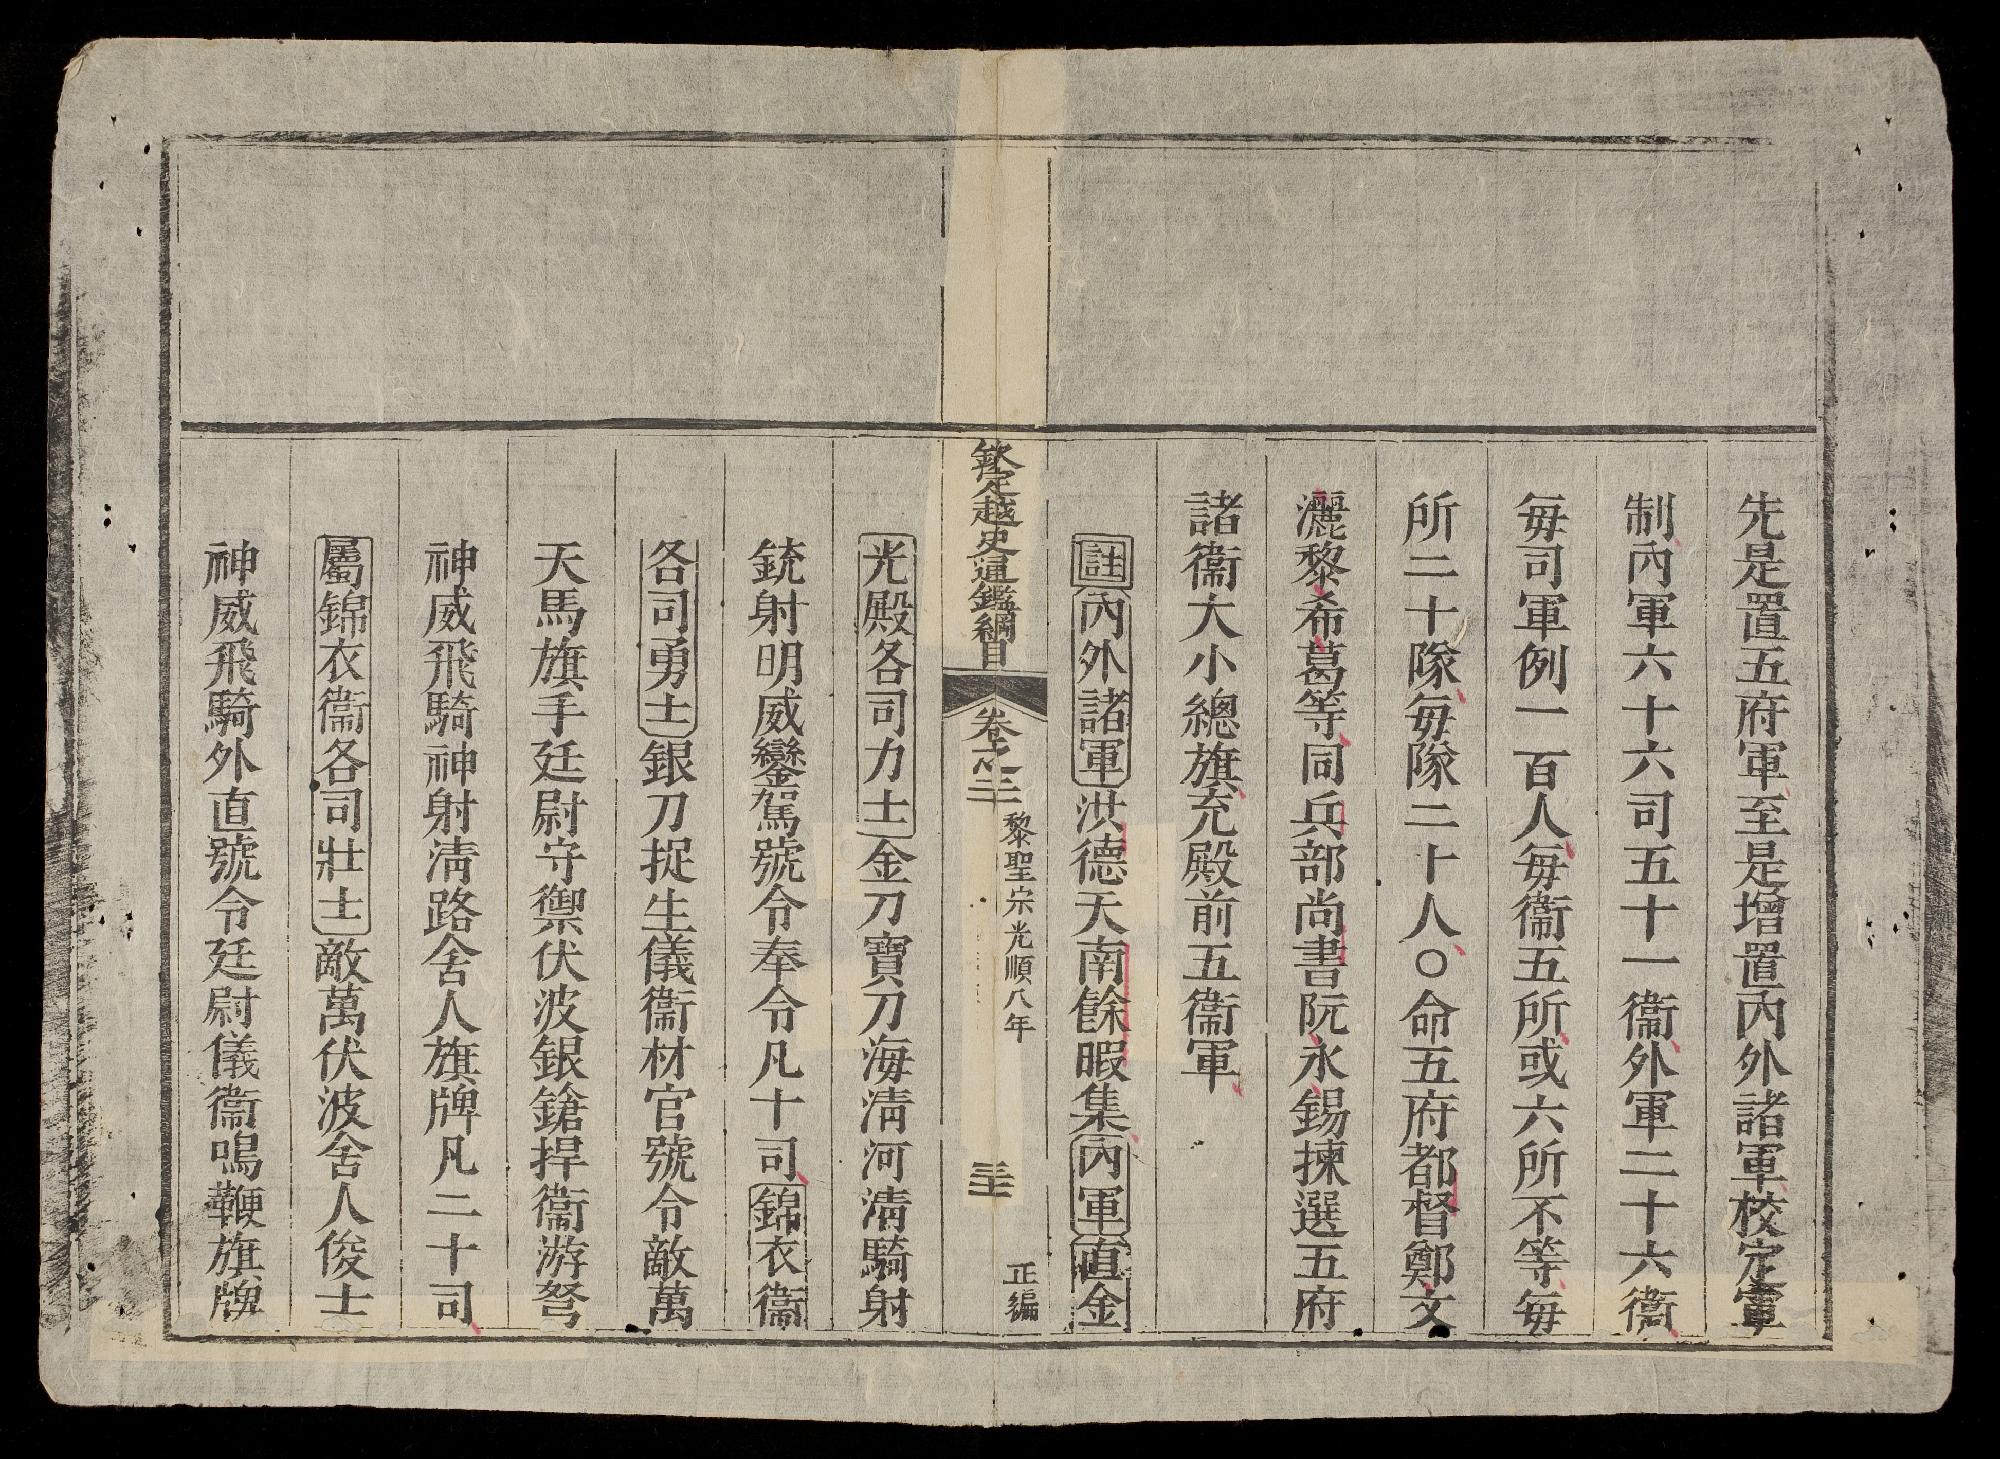 先是置五府軍至是增置內外諸軍校定軍
制內軍六十六司五十一衞外軍二十六衞
每司軍例一百人每衞五所或六所不等每
所二十隊每隊二十人○命五府都督鄭文
灑黎希葛等同兵部尚書阮永錫揀選五府
諸衞大小總旗充殿前五衞軍
註內外諸軍洪德天南餘暇集內軍直金
欽定越史通鑑綱目
卷之二
黎聖宗光順八年
三十
正編
光殿各司力士金刀寶刀海淸河淸騎射
銃射明威鑾駕號令奉令凡十司錦衣衞
各司勇士銀刀捉生儀衞材官號令敵萬
天馬旗手廷尉守禦伏波銀鎗捍衞游弩
神威飛騎神射淸路舍人旗牌凡二十司
屬錦衣衞各司壯士敵萬伏波舍人俊士
神威飛騎外直號令廷尉儀衞鳴鞭旗牌